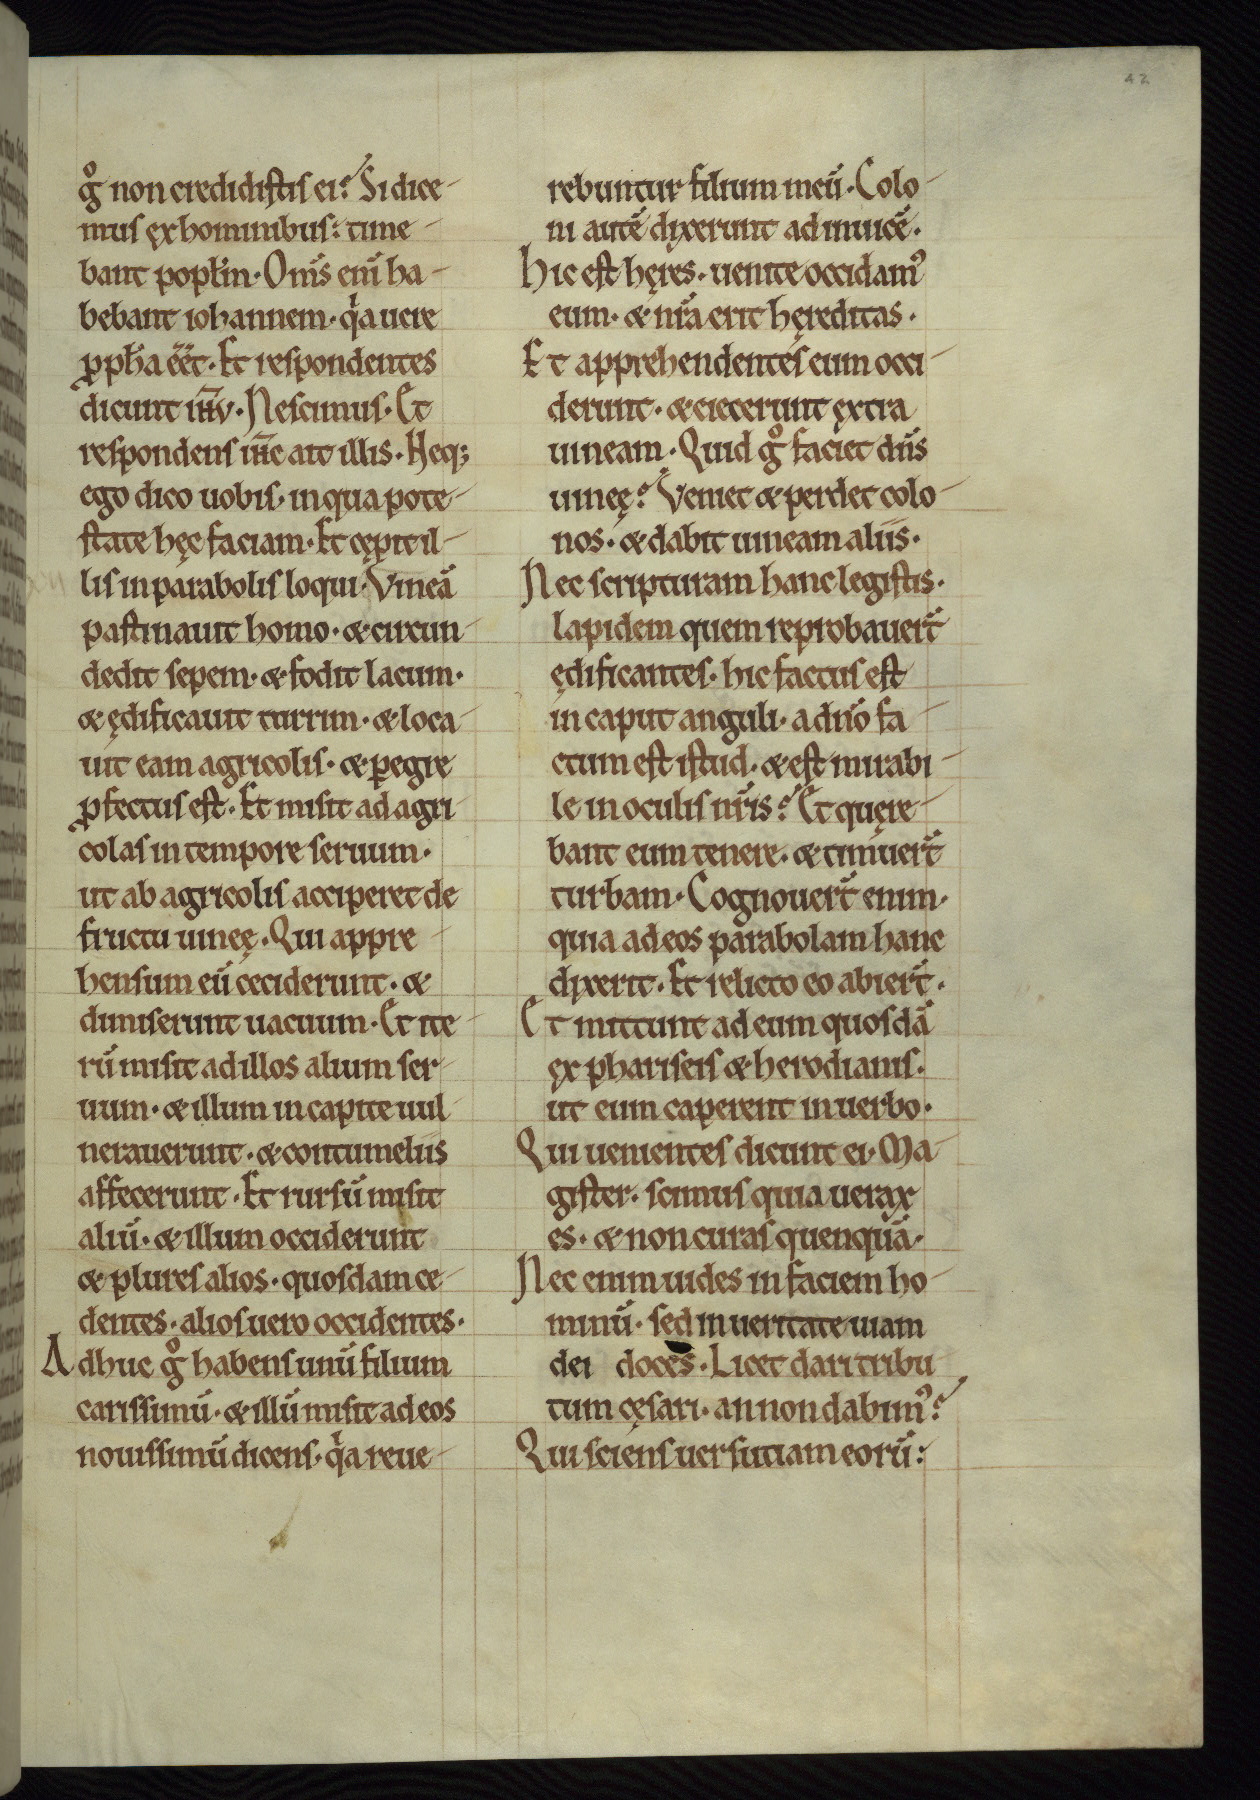 42
g̊ non credidistis ei? Si dice-
mus ex hominibus: time-
bant popłm. Om̄s enī ha-
bebant iohannem. q̍a uere
ꝓph̄a eēt. Et respondentes
dicunt ih̄u. Nescimus. Et
respondens ih̄c ait illis. Neq;
ego dico uobis. in qua pote-
state hęc faciam. Et cępit il-
lis in parabolis loqui. Vineā
pastinauit homo. & circun-
dedit sepem. & fodit lacum.
& ędificauit turrim. & loca-
uit eam agricolis. & ꝑegre
ꝓfectus est. Et misit ad agri-
colas in tempore seruum.
ut ab agricolis acciperet de
fructu uineę. Qui appre-
hensum eū ceciderunt. &
dimiserunt uacuum. Et ite-
rū misit ad illos alium ser-
uum. & illum in capite uul-
nerauerunt. & contumeliis
affecerunt. Et rursū misit
aliū. & illum occiderunt
& plures alios. quosdam ce-
dentes. alios uero occidentes.
Adhuc g̊ habens unū filium
carissimū. & illū misit ad eos
nouissimū dicens. q̍a reue-
rebuntur filium meū. Colo-
ni autē dixerunt ad inuicē.
Hic est hęres. uenite occidam᾽
eum. & nr̄a erit hęreditas.
Et apprehendentes eum occi-
derunt. & eiecerunt extra
uineam. Quid g̊ faciet dn̄s
uineę? Veniet & perdet colo-
nos. & dabit uineam aliis.
Nec scripturam hanc legistis.
lapidem quem reprobauer̄t
ędificantes. hic factus est
in caput anguli. a dn̄o fa-
ctum est istud. & est mirabi-
le in oculis nr̄is? Et quęre-
bant eum tenere. & timuer̄t
turbam. Cognouer̄t enim.
quia ad eos parabolam hanc
dixerit. Et relicto eo abier̄t.
Et mittunt ad eum quosdā
ex phariseis & herodianis.
ut eum caperent in uerbo.
Qui uenientes dicunt ei. Ma-
gister. scimus quia uerax
es. & non curas quenquā.
Nec enim uides in faciem ho-
minū. sed in ueritate uiam
dei doces. Licet dari tribu
tum cęsari. an non dabim᾽?
Qui sciens uersutiam eorū: